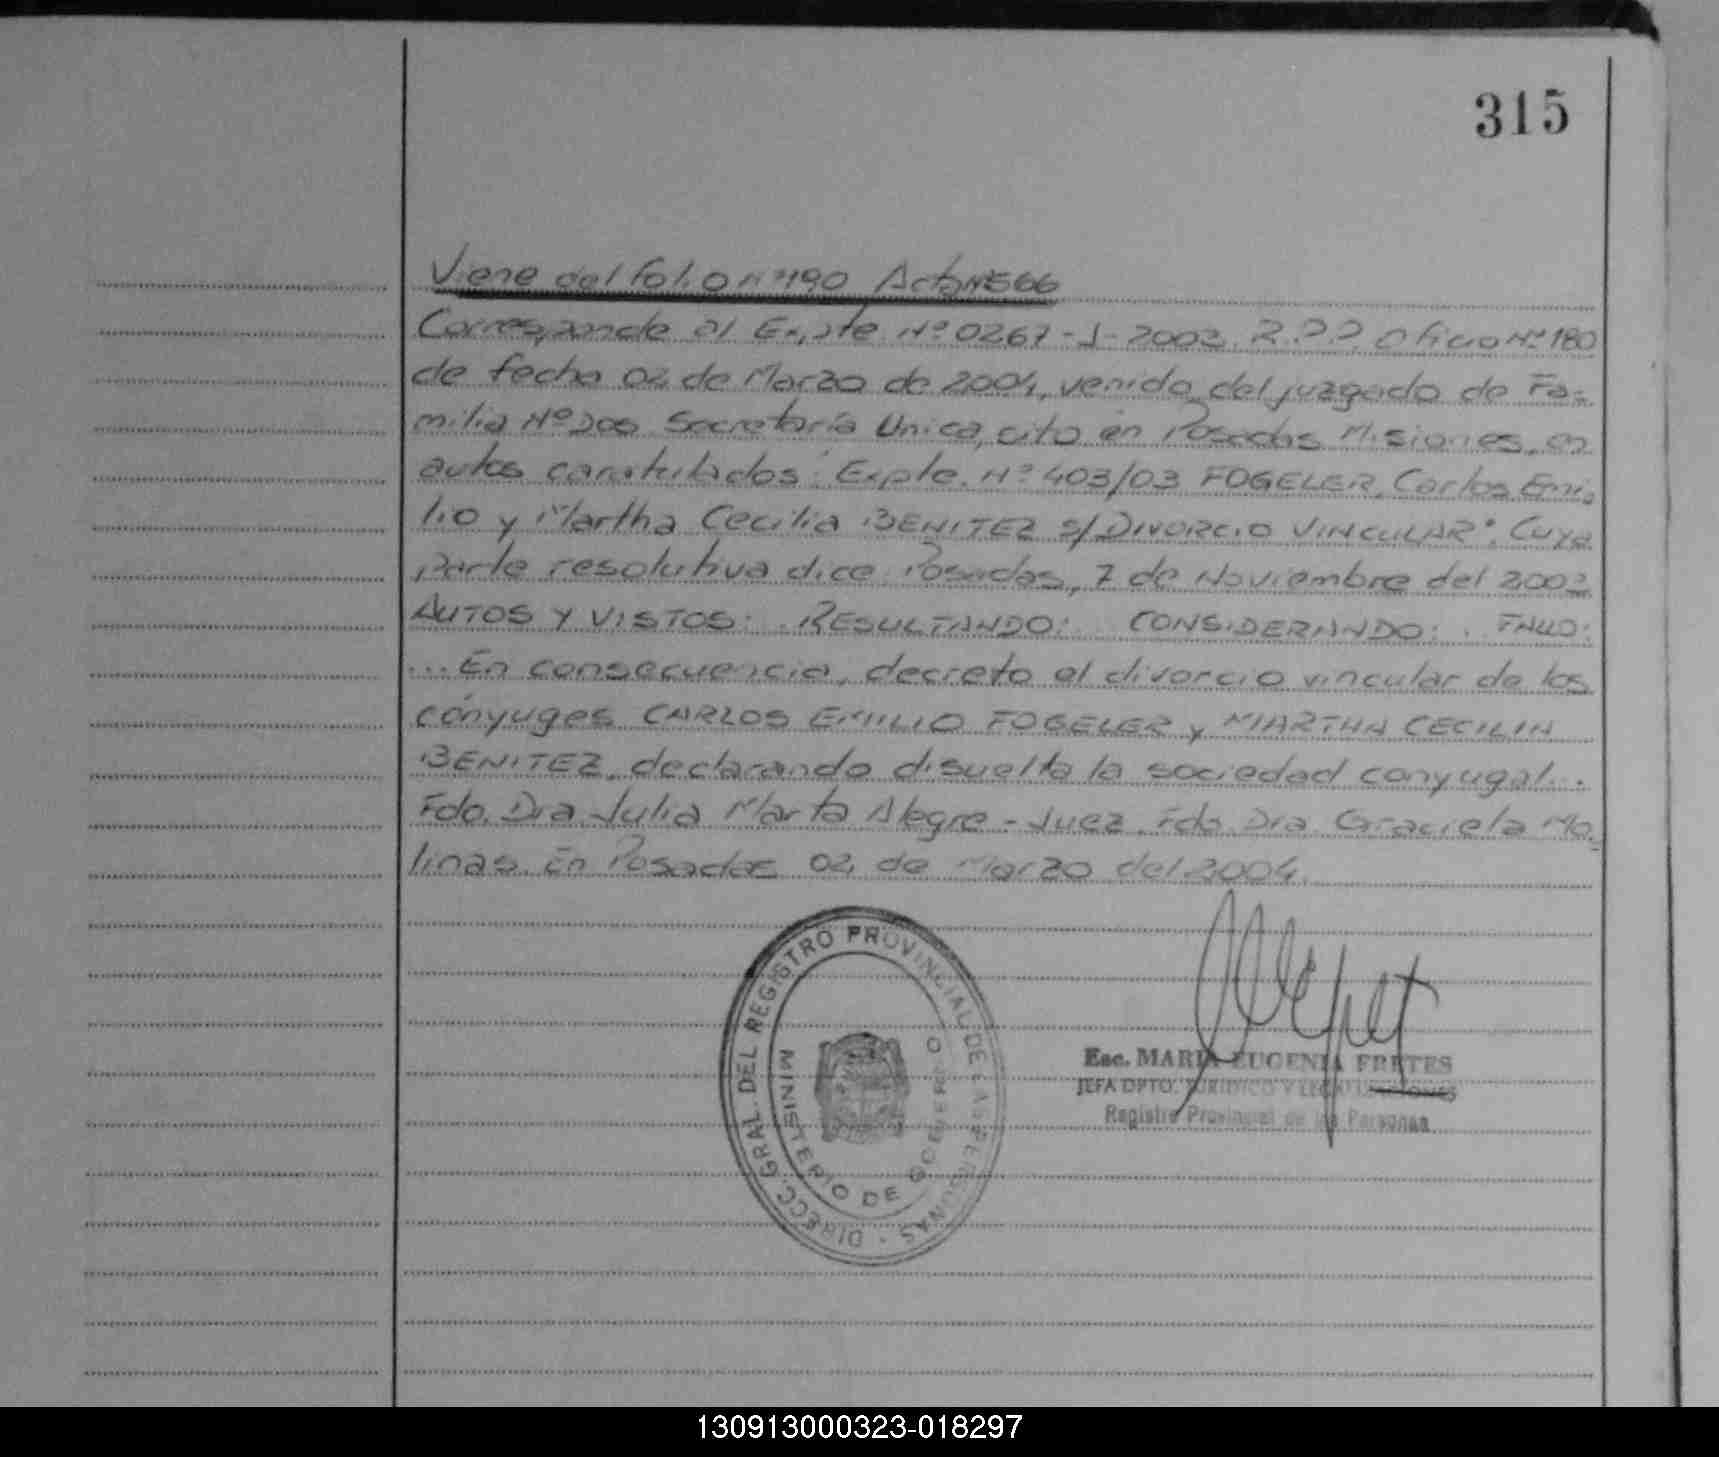 315
Viene del folio nº 190 Acta Nº 566
Corresponde al Expte. Nº 0267-J-2003 R.P.P. Oficio Nº 180
de fecha 02 de Marzo de 2004, venido del juzgado de Fa-
milia Nº Secretaría Unica, cito en Posadas Misiones, en
autos caratulados: "Expte. Nº 403/03 FOGELER, Carlos Emi-
lio y Martha Cecilia BENITEZ s/DIVORCIO VINCULAR". Cuya
parte resolutiva dice: Posadas, 7 de Noviembre del 2003
AUTOS Y VISTOS: RESULTANDO: CONSIDERANDO: FALLO:
...En consecuencia, decreto el divorcio vincular de los
cónyuges CARLOS EMILIO FOGELER y MARTHA CECILIA
BENITEZ, declarando disuelta la sociedad conyugal...
Fdo. Dra Julia Marta Alegre - Juez. Fdo. Dra Graciela Mo-
linas. En Posadas 02 de Marzo del 2004.
DIRECC. GRAL. DEL REGISTRO PROVINCIAL DE LAS PERSONAS
MINISTERIO DE GOBIERNO
Esc. MARIA EUGENIA FRETES
JEFA DPTO. JURIDICO Y LEGALIZACIONES
Registro Provincial de las Personas
130913000323-018297